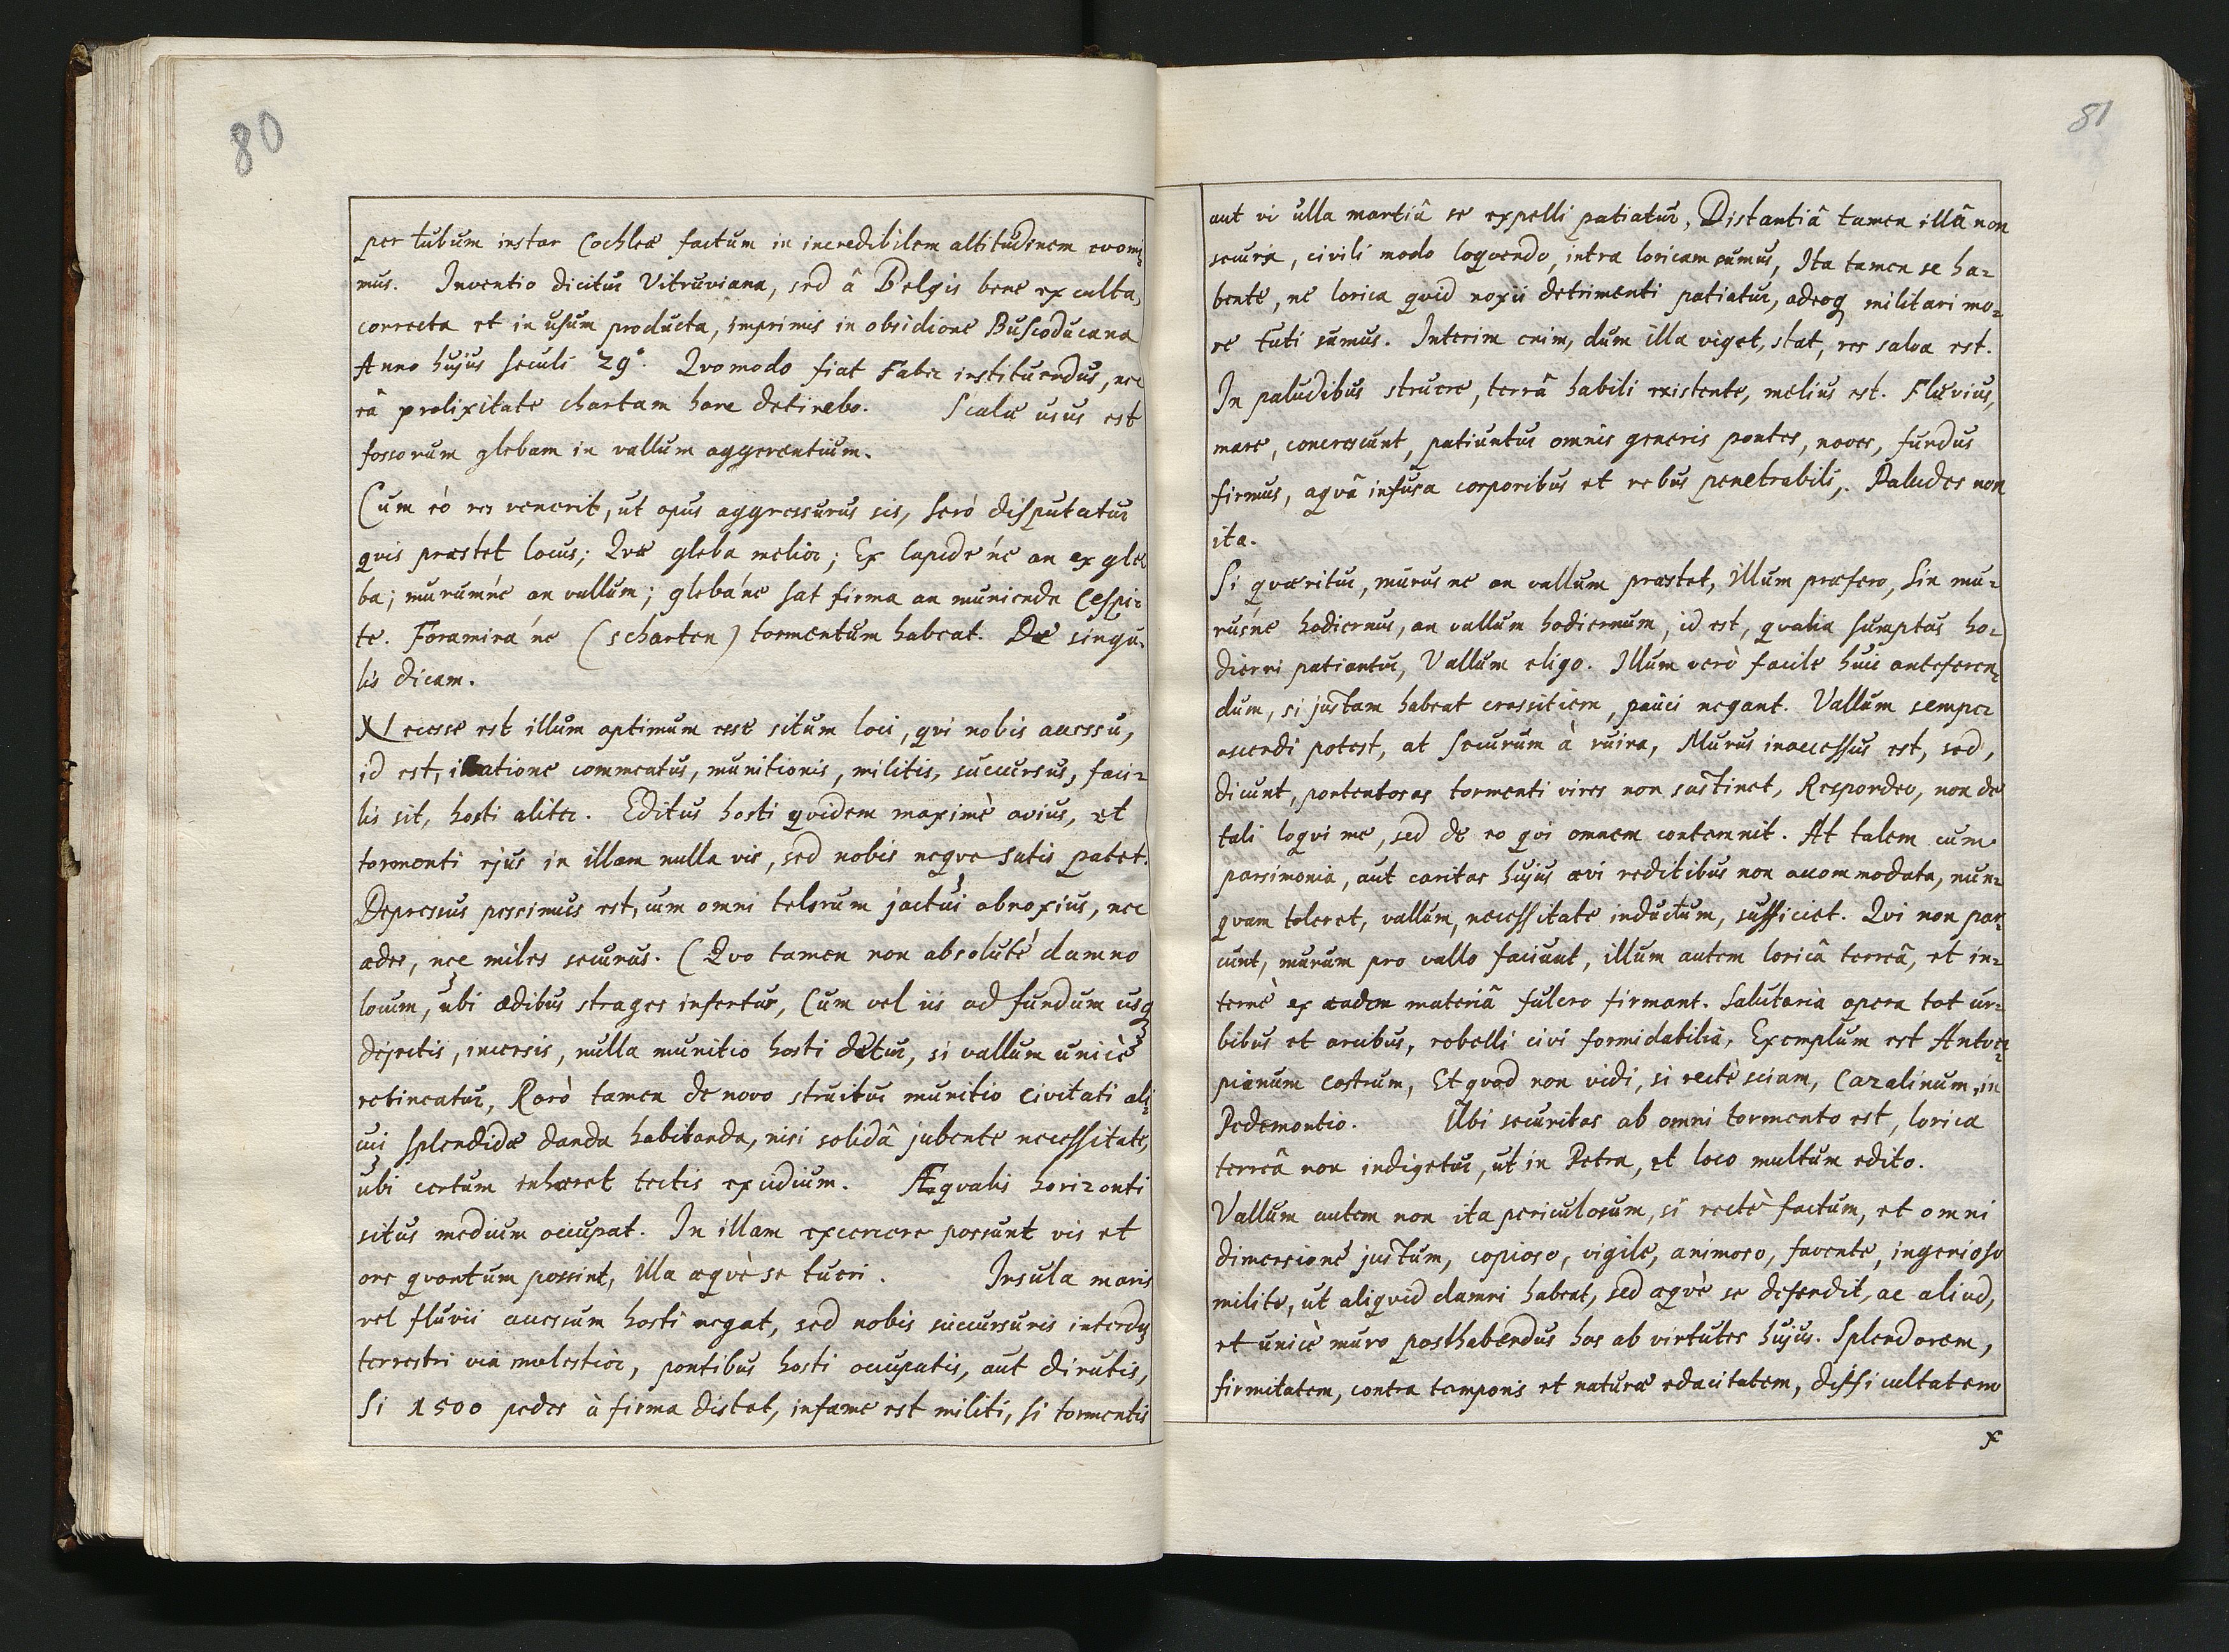 80
per tubum instar Cochleæ factum in incredibilem altitudinem evomi-
mus. Inventio dicitur Vitruviana, sed â Belgis bene exculta,
correcta et in usum producta, imprimis in obsidione Buscoducana
Anno hujus seculi 29°. Qvomodo fiat Faber instituendus, nec
eâ prolixitate chartam hanc detinebo. Scalæ usus est
fossorum glebam in vallum aggerentium.
Cum eò res venerit, ut opus aggressurus sis, serò disputatur
qvis præstet locus; Qvæ gleba melior; Ex lapide'ne an ex gle-
ba; murum'ne an vallum; gleba'ne sat firma an munienda Cespi-
te. Foramina'ne (scharten) tormentum habeat. De singu-
lis dicam.
Necesse est illum optimum esse situm loci, qvi nobis accessu,
id est, illatione commeatus, munitionis, militis, succursus, faci-
lis sit, hosti aliter. Editus hosti qvidem maximè avius, et
tormenti ejus in illam nulla vis, sed nobis neqve satis patet.
Depressus pessimus est, cum omni telorum jactui obnoxius, nec
ædes, nec miles securus. (Qvo tamen non absolutè damno
locum, ubi ædibus strages infertur, Cum vel iis ad fundum usq
dejectis, incensis, nulla munitio hosti detur, si vallum unicè
retineatur, Rarò tamen de novo struitur munitio civitati ali-
cui splendidæ danda habitanda, nisi solidâ jubente necessitate,
ubi certum inhæret tectis excidium. Æqvalis horizonti
situs medium occupat. In illam exercere possunt vis et
ars qvantum possint, illa æqvè se tueri. Insula maris
vel fluvii accessum hosti negat, sed nobis succursuris interdum
terrestri via molestior, pontibus hosti occupatis, aut dirutis,
Si 1500 pedes à firma distat, infame est militi, si tormentis
81
aut vi ulla martiâ se expelli patiatur, Distantiâ tamen illâ non
securâ, civili modo loqvendo, intra loricam sumus, Ita tamen se ha-
bente, ne lorica qvid noxii detrimenti patiatur, adeoq militari mo-
re tuti sumus. Interim enim, dum illa viget, stat, res salva est.
In paludibus struere, terrâ habili existente, melius est. Fluvius,
mare, concrescunt, patiuntur omnis generis pontes, naves, fundus
firmus, aqvâ infusa corporibus et rebus penetrabili,. Paludes non
ita.
Si qværitur, murus ne an vallum præstet, illum præfero, Sin mu-
rusne hodiernus, an vallum hodiernum, id est, qvalia sumptus ho-
dierni patiantur, Vallum eligo. Illum verò facile huic anteferen-
dum, si justam habeat crassitiem, pauci negant. Vallum semper
ascendi potest, at securum à ruina, Murus inaccessus est, sed,
dicunt, portentosas tormenti vires non sustinet, Respondeo, non de
tali loqvi me, sed de eo qvi omnem contemnit. At talem cum
parsimonia, aut caritas hujus ævi reditibus non accommodata, nun-
qvam toleret, vallum, necessitate inductum, sufficiet. Qvi non par-
cunt, murum pro vallo faciunt, illum autem loricâ terreâ, et in-
ternè ex eadem materiâ fulcro firmant. Salutaria opera tot ur-
bibus et arcibus, rebelli civi formidabilia, Exemplum est Antver-
pianum castrum, Et qvod non vidi, si rectè sciam, Cazalinum, in
Pedemontio. Ubi securitas ab omni tormento est, lorica
terreâ non indigetur, ut in Petra, et loco multum edito.
Vallum autem non ita periculosum, si rectè factum, et omni
dimensione justum, copioso, vigile, animoso, favente, ingenioso
milite, ut aliqvid damni habeat, sed æqvè se defendit, ac aliud,
et unicè muro posthabendus has ab virtutes hujus. Splendorem,
firmitatem, contra temporis et naturæ edacitatem, difficultatem
x